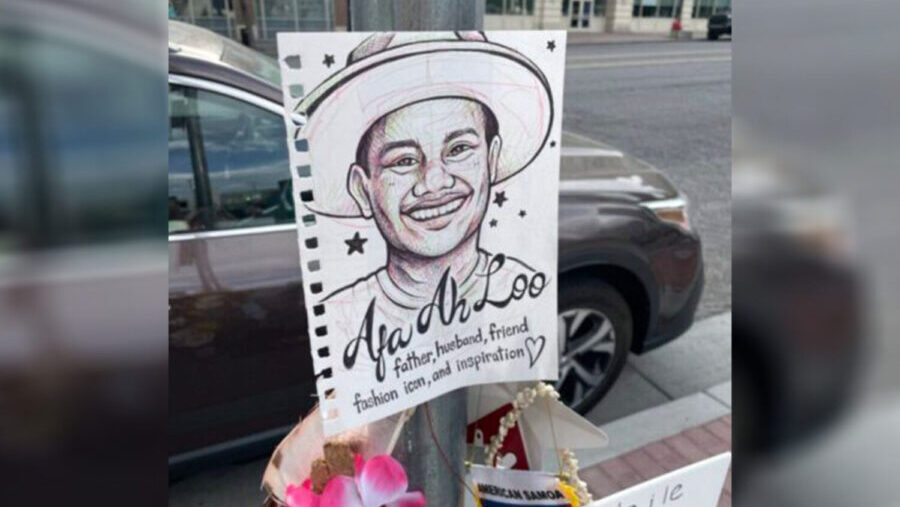 Afa Ah Loo
father, husband, friend
fashion icon, and inspiration
AMERICAN SAMOA